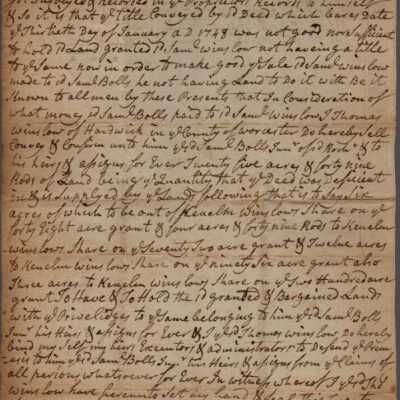 for Surveyed & Recorded in ye Proprietors Records, a himself
& So it is that ye title Conveyed by sd Deed which bears Date
ye Thirtieth Day of January A D 1748 was not good nor Sufficient
to hold sd Land granted sd Saml winslow not having a title
to ye Same now in order to make good ye Sale sd Saml winslow
made to sd Saml Bolls he not having Land to Do it with Be it
Known to all men by these Presents that In Consideration of
what money sd Saml Bolls paid to sd Saml winslow I Thomas
winslow of Hardwick in ye County of worcester Do hereby Sell
Convey & Confirm unto him ye sd Saml Bolls Junr of sd Roch & to
his heirs & assigns for Ever Twenty five acres & forty nine
Rods of Land being ye Quantity that ye Deed was Deficient
in & is Supplyed by ye Lands following that is to Say Six
acres of which to be out of Kenelm Winslows Share on ye
forty Eight acre grant & four acres & forty nine Rods to Kenelm
winslows Share on ye Seventy Two acre grant & Twelve acres
to Kenelm winslows Share on ye ninety Six acre grant also
Three acres to Kenelm winslows Share on ye Two Hundred acre
grant To Have & To Hold the sd granted & Bargained Lands
with ye Priveledges to ye Same belonging to him ye sd Saml Bolls
Junr his Heirs & assigns for Ever & I ye sd Thomas winslow Do hereby
bind my Self my heirs Executors & administrators to Defend ye Prem
eses to him ye sd Saml Bolls Junr his Heirs & assigns from ye Claims of
all persons whatsoever for Ever In witness whereof I ye sd Thos
winslow have hereunto Set my hand & Seal this